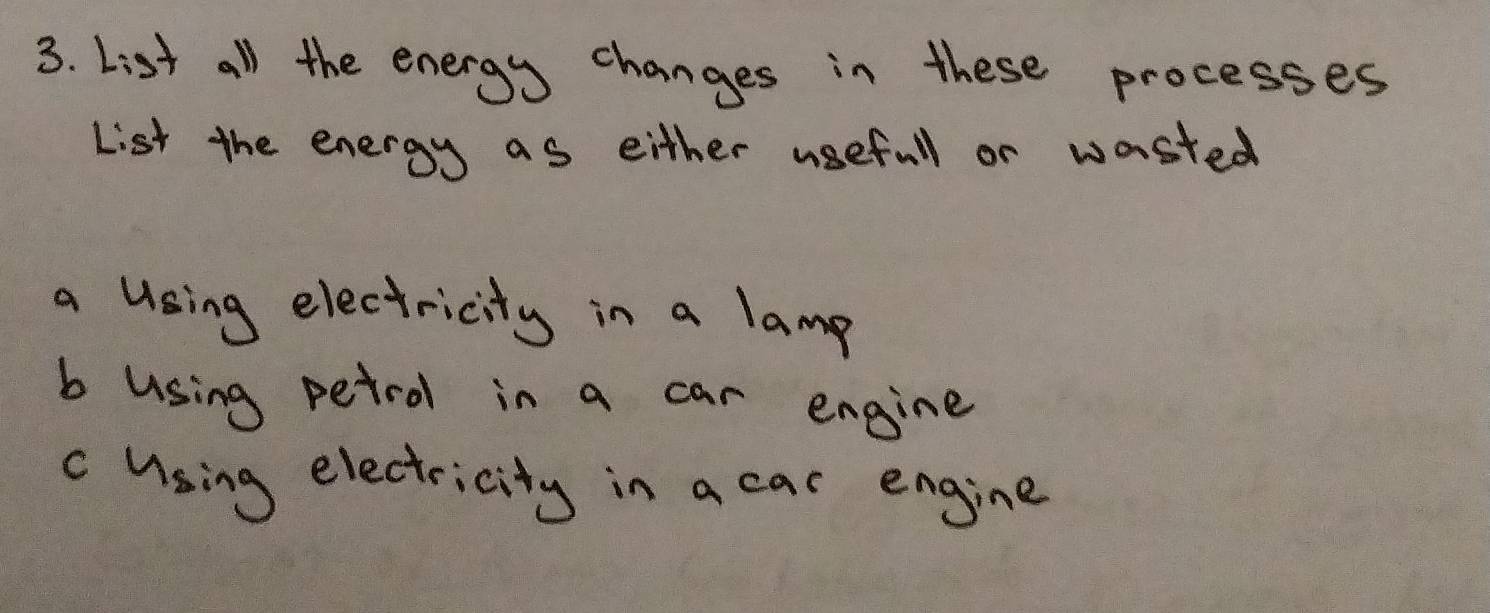 3. List all the energy changes in these processes
List the energy as either usefull or wasted
a Using electricity in a lamp
b Using petrol in a car engine
c Using electricity in a car engine